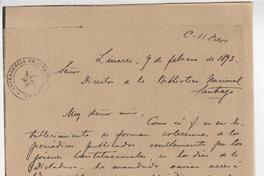 C-11 Pedro
Linares, 9 de febrero de 1893.
Señor
Director de la Biblioteca Nacional
Santiago
Muy señor mio:
Como sé q. en ese es-
tablecimiento se forman colecciones de los
periódicos publicados ocultamente por los
jovenes Constitucionales en los dias de la
Dictadura, he mandado